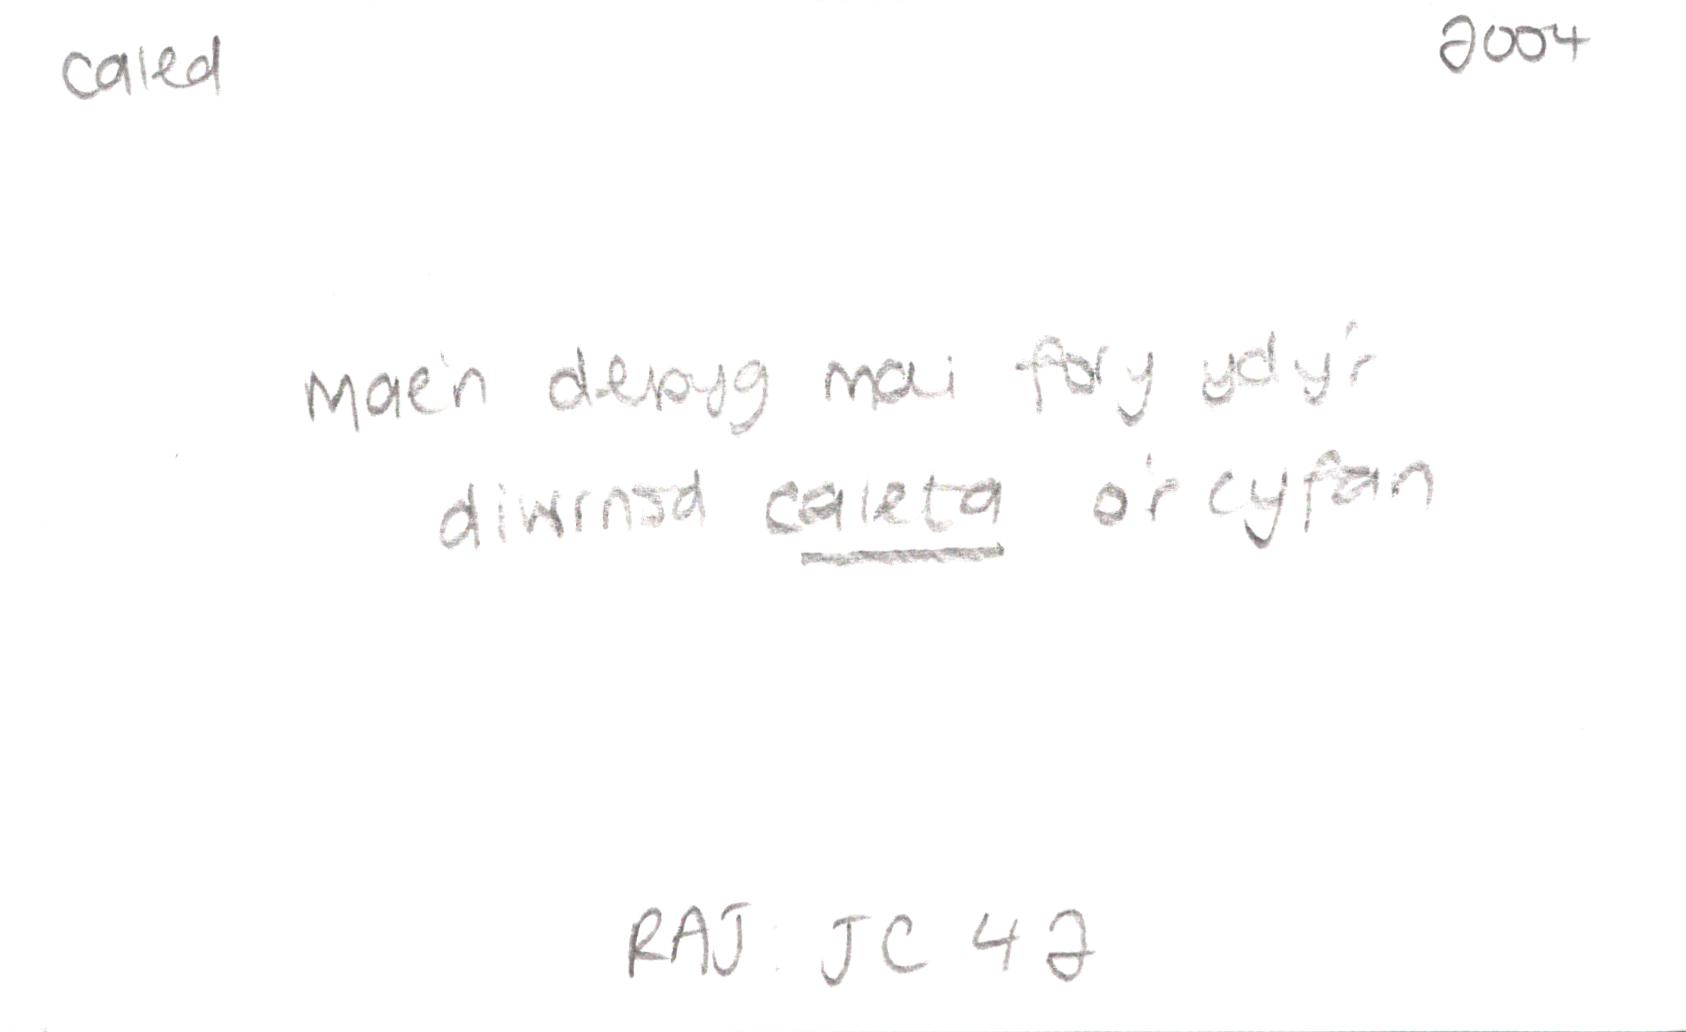 caled 2004
Mae'n debyg mai fory ydy'r
diwrnod caleta o'r cyfan
RAJ: JC 42